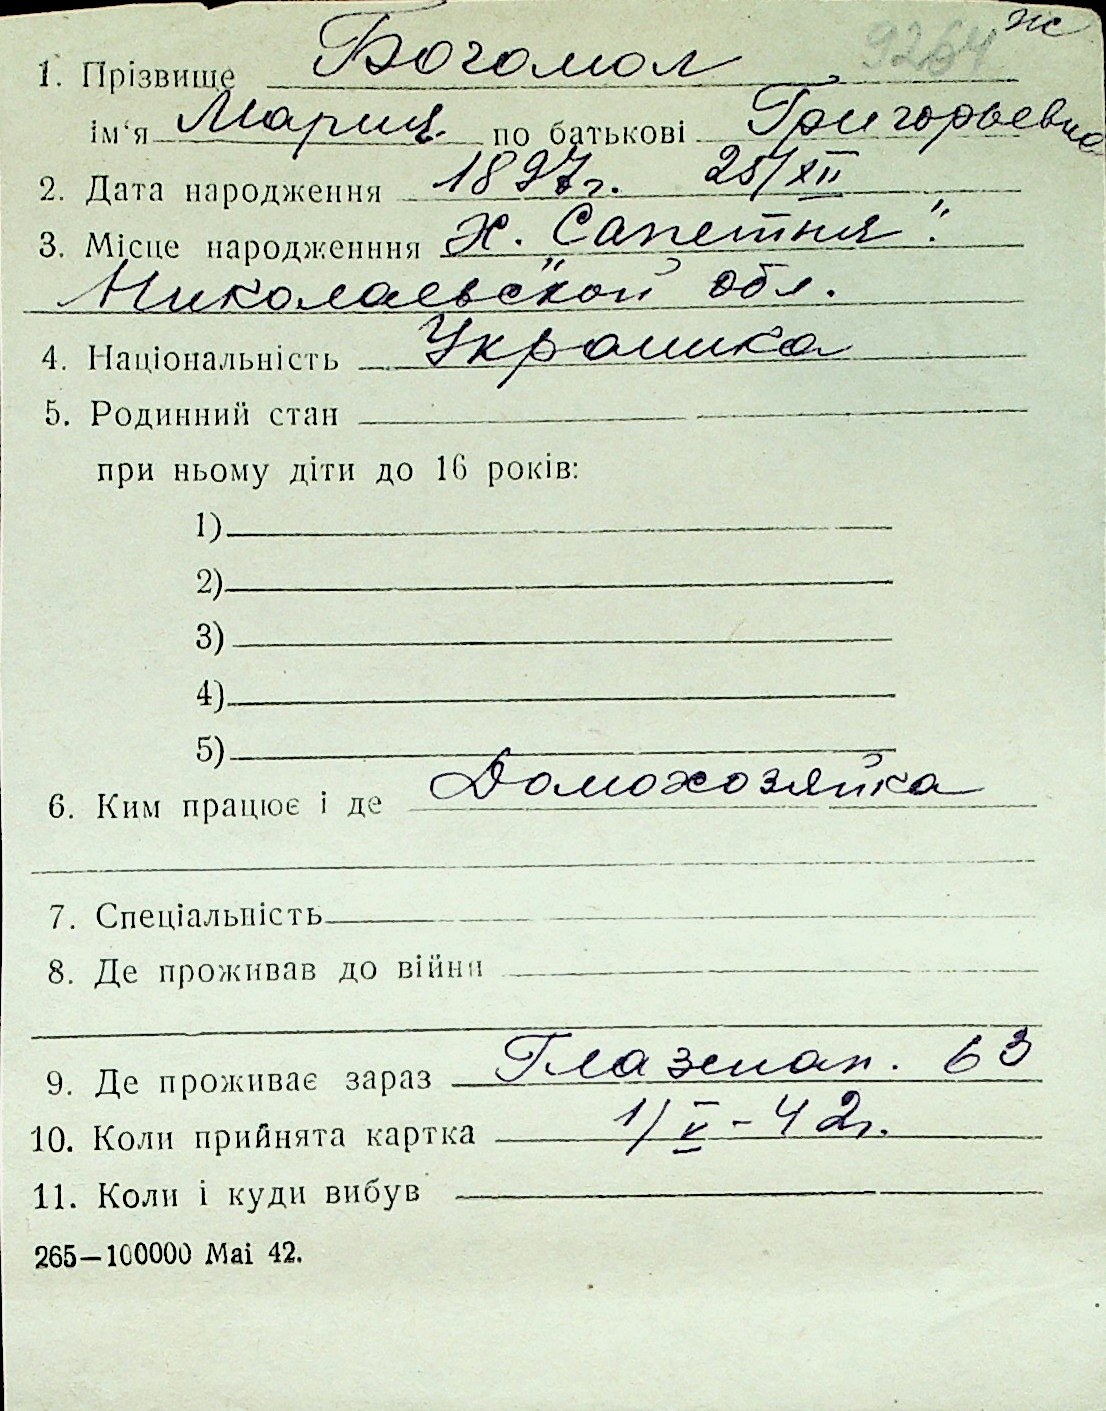 9264 ж
1. Прізвище Богомол
ім'я Мария по батькові Григорьевна
2. Дата народження 1897г. 25/XII
3. Місце народженння х. "Сапетня".
Николаевской обл.
4. Національність Украинка
5. Родинний стан
при ньому діти до 16 років:
1)
2)
3)
4)
5)
6. Ким працює і де Домохозяйка
7. Спеціальність
8. Де проживав до війни
9. Де проживає зараз Глазенап. 63
10. Коли прийнята картка 1/V-42г.
11. Коли і куди вибув
265—100000 Mai 42.